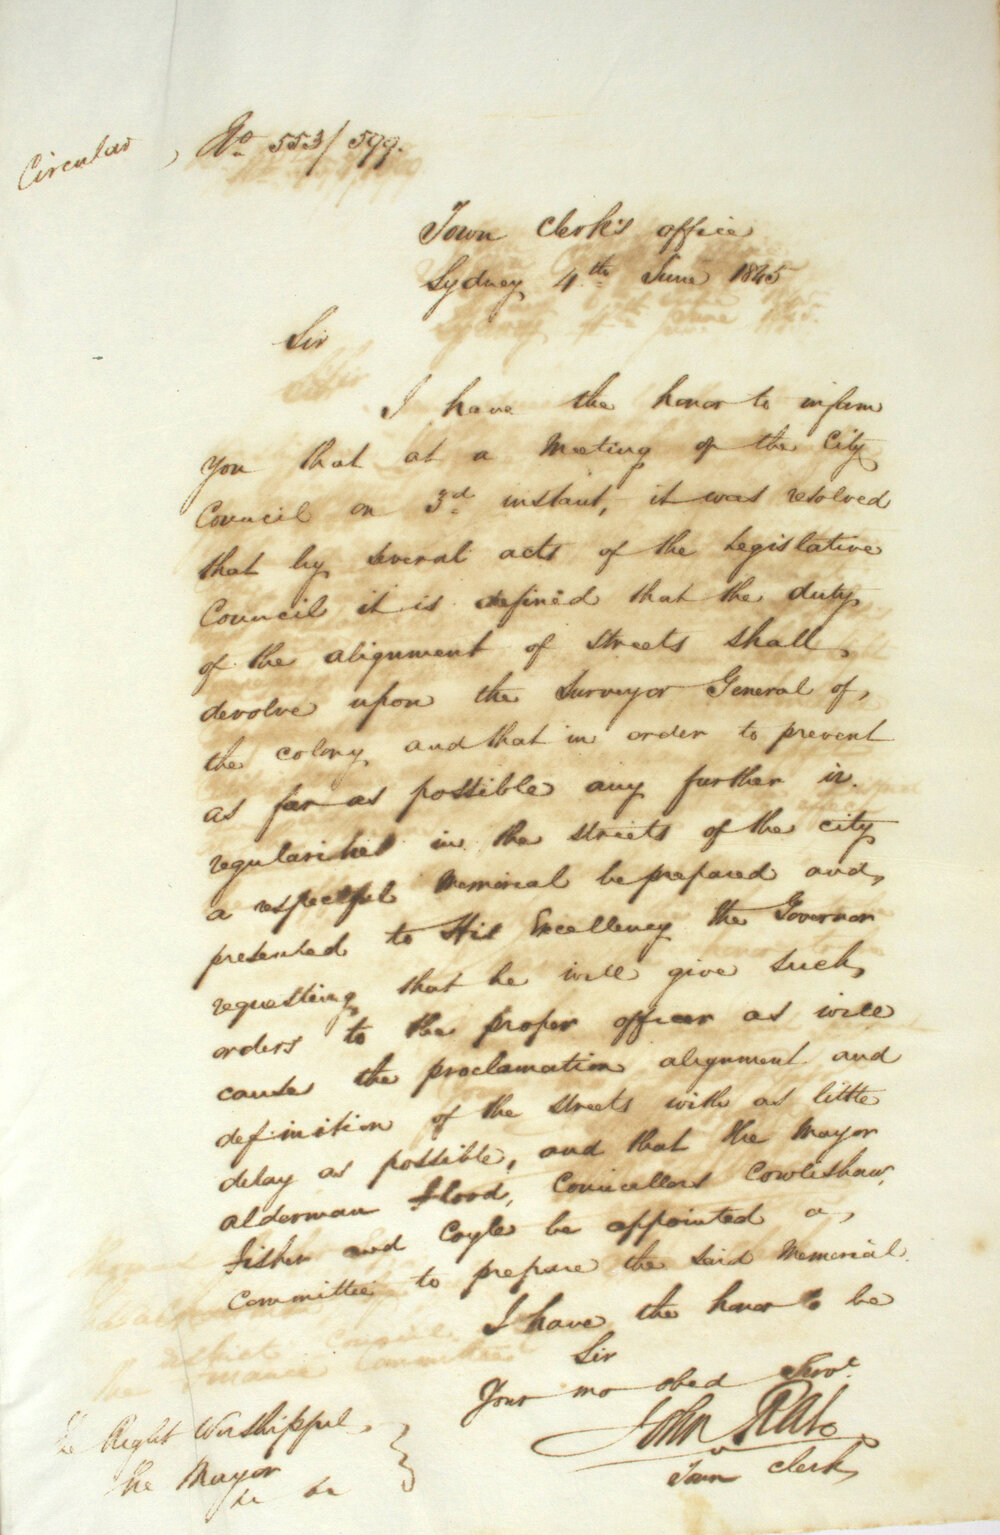 Circular, No 553/599.
Town Clerk's office
Sydney 4th June 1845
Sir
I have the honor to inform
you that at a Meeting of the City
Council on 3d instant, it was resolved
that by several acts of the Legislative
Council it is defined that the duty
of the alignment of streets shall
devolve upon the Surveyor General of
the colony and that in order to prevent
as far as possible any further ir-
regularities in the streets of the city
a respectful Memorial be prepared and
presented to His Excellency the Governor
requesting that he will give such
orders to the proper officer as will
cause the proclamation alignment and
definition of the streets with as little
delay as possible, and that the Mayor
alderman Flood, Councellors Cowlishaw,
Fisher and Coyle be appointed a
Committee to prepare the said Memorial.
I have the honor to be
Sir
Your mo obed Servt
John Rae
Town Clerk
The Right Worshipful
the Mayor